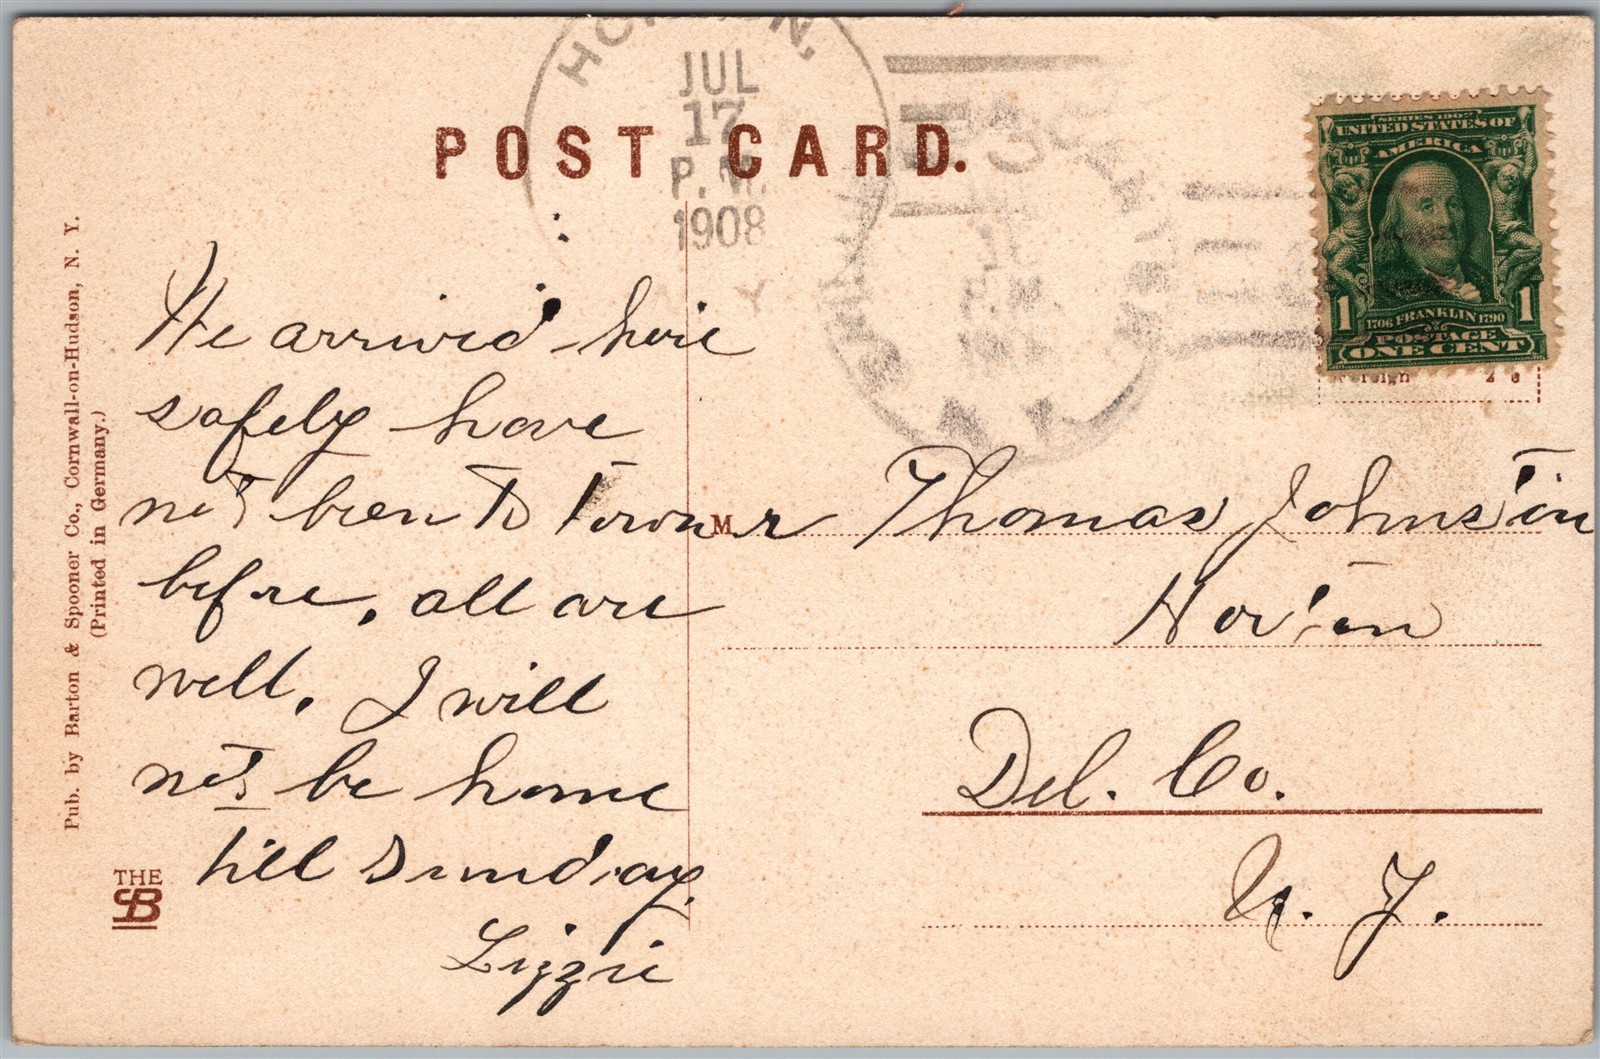 HORTON,
JUL
17
P. M.
1908
POST CARD.
SERIES 1902
UNITED STATES OF
AMERICA
1 1
1706 FRANKLIN 1790
POSTAGE
ONE CENT
We arrived here
safely have
not been to town
before, all are
well. I will
not be home
till Sunday.
Lizzie
Mr Thomas Johnston
Horton
Del. Co.
N. Y.
Pub. by Barton & Spooner Co., Cornwall-on-Hudson, N. Y.
(Printed in Germany.)
THE
SB